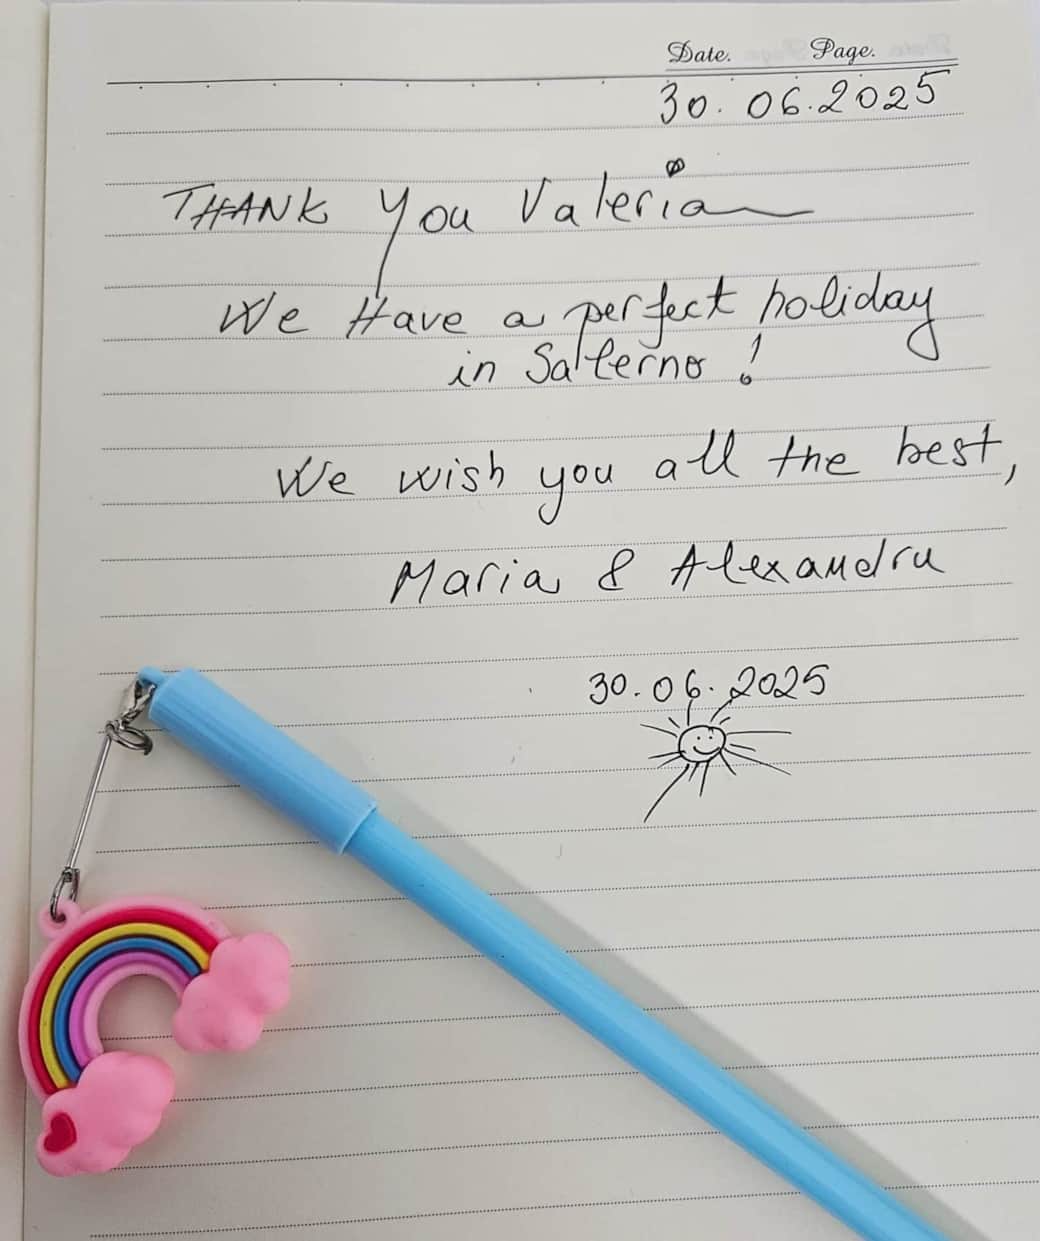 Date. Page.
30.06.2025
THANK you Valeria
We Have a perfect holiday
in Salerno!
We wish you all the best,
Maria & Alexandru
30.06.2025